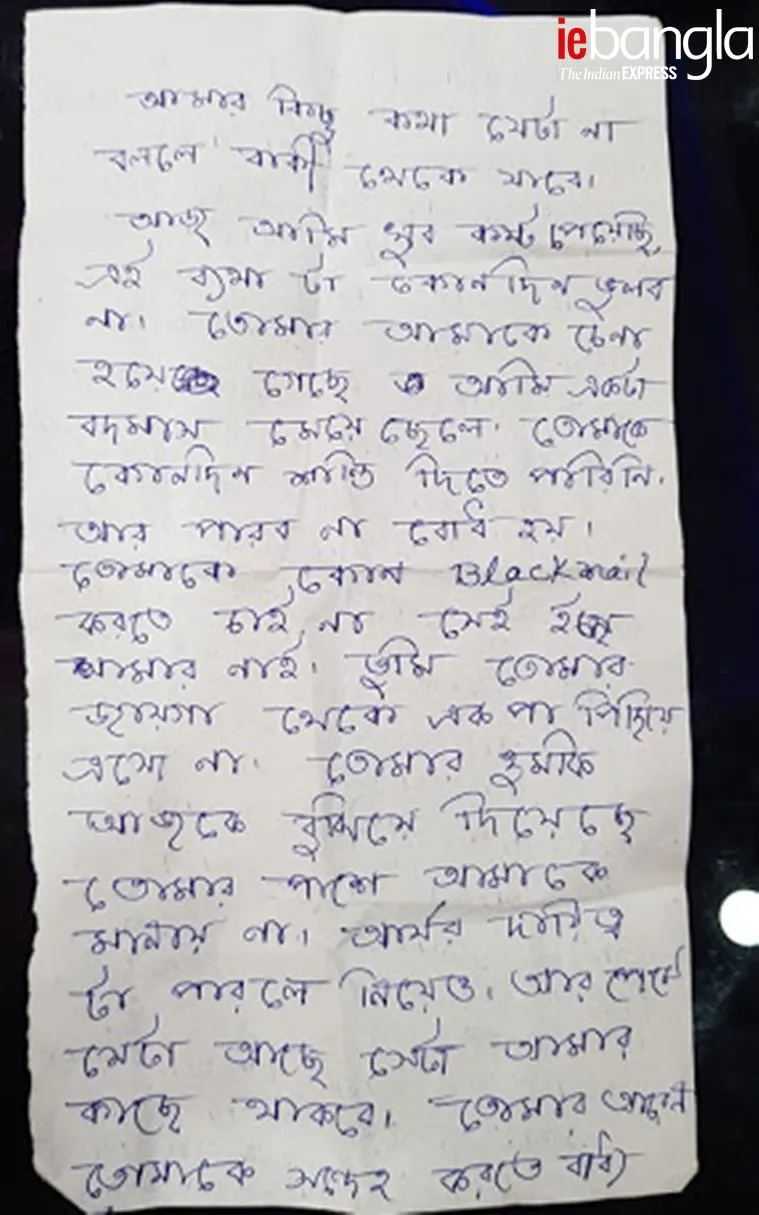 iebangla
The Indian EXPRESS
আমার কিছু কথা যেটা না
বললে বাকী থেকে যাবে।
আজ আমি খুব কষ্ট পেয়েছি,
এই ব্যথা টা কোনদিন ভুলব
না। তোমার আমাকে চেনা
হয়ে গেছে আমি একটা
বদমাস মেয়ে ছেলে। তোমাকে
কোনদিন শান্তি দিতে পারিনি।
আর পারব না বোধ হয়।
তোমাকে কোন Blackmail
করতে চাই না সেই
আমার নাই। তুমি তোমার
জায়গা থেকে এক পা পিছিয়ে
এসো না। তোমার হুমকি
আজকে বুঝিয়ে দিয়েছে
তোমার পাশে আমাকে
মানায় না। আর্যর দায়িত্ব
টা পারলে নিয়েও। আর
যেটা আছে সেটা আমার
কাছে থাকবে। তোমার
তোমাকে সন্দেহ করতে বাধ্য